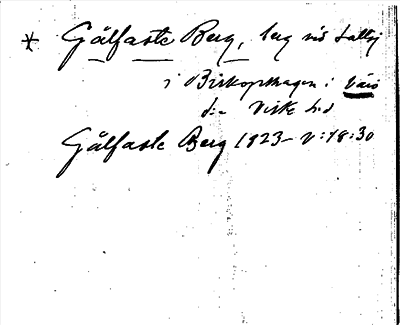 * Gålfaste Berg, berg vid Lally
i Biskopshagen i Värö
s:n Viske hd
Gålfaste Berg 1923 - V:18:30